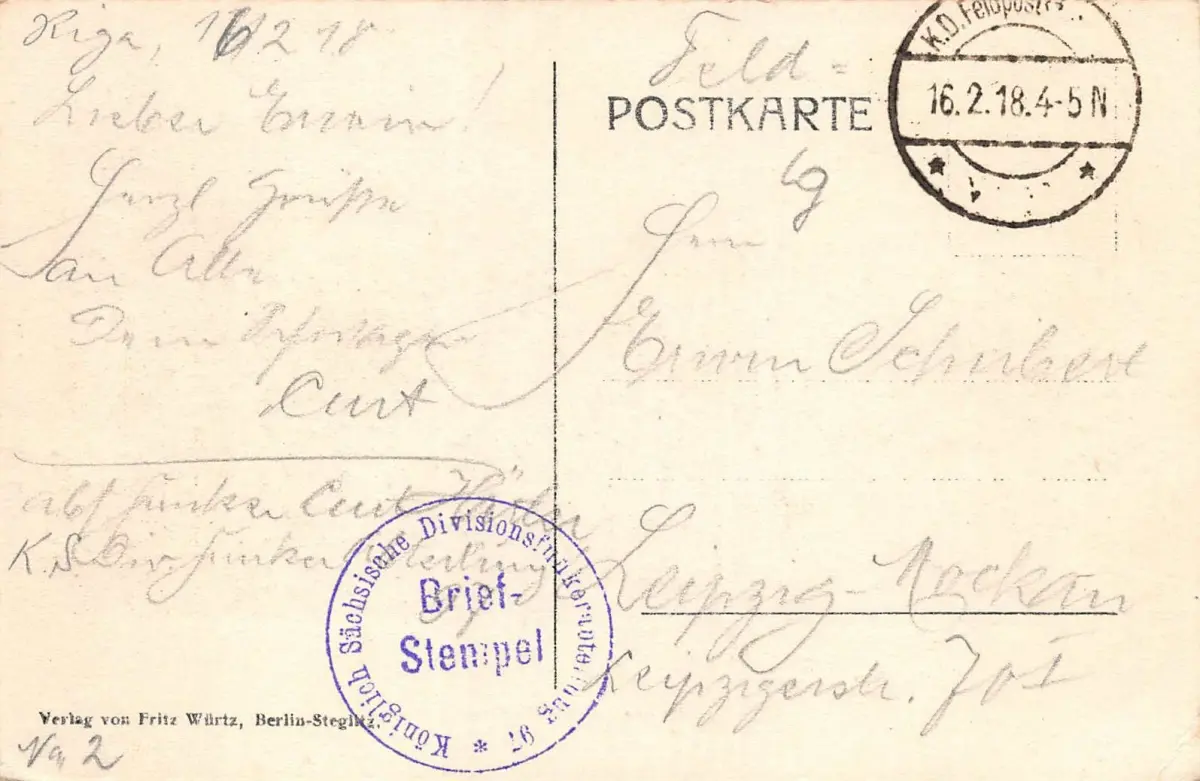 Riga, 16/2 18
Lieber Erwin!
Herzl Grüße
an Alle
Dein
Curt
Abs Funker Curt
K. S. Div. Funker Abteilung
97
Verlag von Fritz Würtz, Berlin-Steglitz.
No 2
Feld-
POSTKARTE
K.D. Feldpost
16.2.18.4-5 N
Herrn
Erwin Schubert
Leipzig-Mockau
Leipzigerstr. 70 I
Königlich Sächsische Divisionsfunkerabteilung 97
Brief-
Stempel